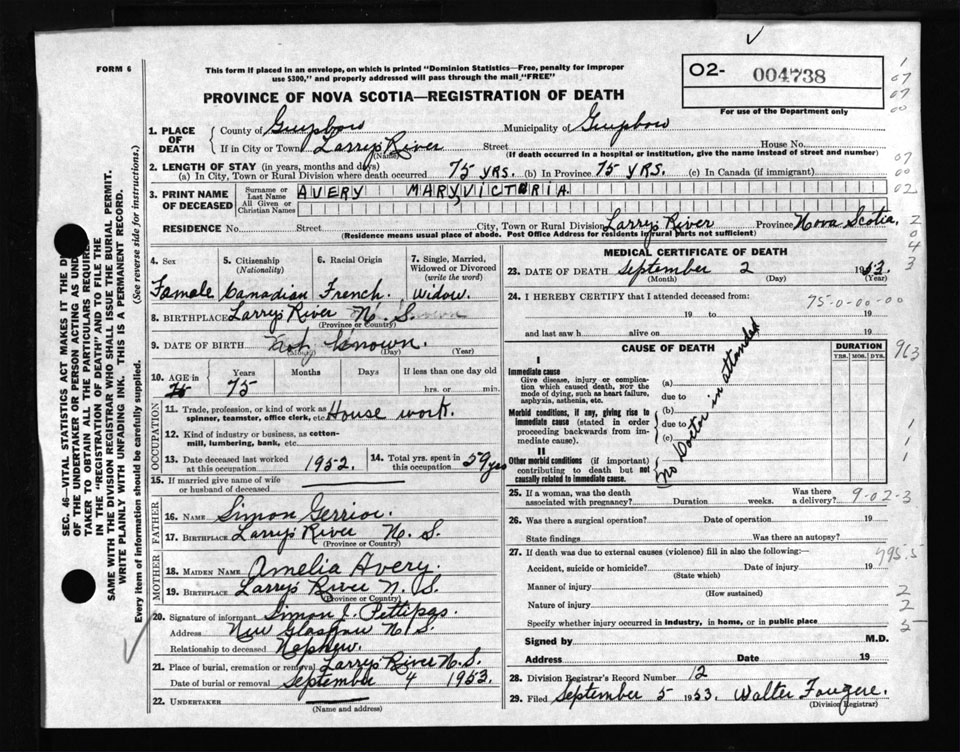 FORM 6
This form if placed in an envelope, on which is printed "Dominion Statistics—Free, penalty for improper
use $300," and properly addressed will pass through the mail "FREE"
PROVINCE OF NOVA SCOTIA—REGISTRATION OF DEATH
O2- 004738
For use of the Department only
1. PLACE OF DEATH County of Guysboro Municipality of Guysboro
If in City or Town Larry's River Street House No.
(Name) (If death occurred in a hospital or institution, give the name instead of street and number)
2. LENGTH OF STAY (in years, months and days)
(a) In City, Town or Rural Division where death occurred 75 yrs. (b) In Province 75 yrs. (c) In Canada (if immigrant)
3. PRINT NAME OF DECEASED Surname or Last Name AVERY MARY, VICTORIA
All Given or Christian Names
RESIDENCE No. Street City, Town or Rural Division Larry's River Province Nova Scotia
(Residence means usual place of abode. Post Office Address for residents in rural parts not sufficient)
4. Sex 5. Citizenship (Nationality) 6. Racial Origin 7. Single, Married, Widowed or Divorced (write the word)
Famale Canadian French. Widow.
8. BIRTHPLACE Larry's River N. S.
(Province or Country)
9. DATE OF BIRTH not known.
(Month) (Day) (Year)
10. AGE in Years Months Days If less than one day old
75 75 hrs. or min.
OCCUPATION
11. Trade, profession, or kind of work as spinner, teamster, office clerk, etc. House work.
12. Kind of industry or business, as cotton-mill, lumbering, bank, etc.
13. Date deceased last worked at this occupation 1952. 14. Total yrs. spent in this occupation 59 yrs
15. If married give name of wife or husband of deceased
FATHER
16. NAME Simon Gerrior.
17. BIRTHPLACE Larry's River N. S.
(Province or Country)
MOTHER
18. MAIDEN NAME Amelia Avery.
19. BIRTHPLACE Larry's River N. S.
(Province or Country)
20. Signature of informant Simon J. Pettipas.
Address New Glasgow N. S.
Relationship to deceased Nephew.
21. Place of burial, cremation or removal Larry's River N. S.
Date of burial or removal September 4 1953.
22. UNDERTAKER
(Name and address)
MEDICAL CERTIFICATE OF DEATH
23. DATE OF DEATH September 2 1953.
(Month) (Day) (Year)
24. I HEREBY CERTIFY that I attended deceased from:
75-0-00-00
19 to 19
and last saw h alive on 19
CAUSE OF DEATH
DURATION
YRS. MOS. DYS.
I
Immediate cause
Give disease, injury or complication, which caused death, NOT the mode of dying, such as heart failure, asphyxia, asthenia, etc.
(a)
due to
Morbid conditions, if any, giving rise to immediate cause (stated in order proceeding backwards from immediate cause).
(b)
due to
(c)
II
Other morbid conditions (if important) contributing to death but not causally related to immediate cause.
no Doctor in attended
25. If a woman, was the death associated with pregnancy? Duration weeks. Was there a delivery?
9-02-3
26. Was there a surgical operation? Date of operation 19
State findings Was there an autopsy?
27. If death was due to external causes (violence) fill in also the following:—
Accident, suicide or homicide? Date of injury 19
(State which)
795.5
Manner of injury
(How sustained)
Nature of injury
Specify whether injury occurred in industry, in home, or in public place
Signed by M.D.
Address Date 19
28. Division Registrar's Record Number 12
29. Filed September 5 1953 Walter Fougere.
(Division Registrar)
SEC. 46—VITAL STATISTICS ACT MAKES IT THE
OF THE UNDERTAKER OR PERSON ACTING AS
TAKER TO OBTAIN ALL THE PARTICULARS
IN THE "REGISTRATION OF DEATH" AND TO FILE THE
SAME WITH THE DIVISION REGISTRAR WHO SHALL ISSUE THE BURIAL PERMIT.
WRITE PLAINLY WITH UNFADING INK. THIS IS A PERMANENT RECORD.
Every item of information should be carefully supplied. (See reverse side for instructions.)
1
07
07
00
07
00
02
2
04
3
963
1
1
2
2
5